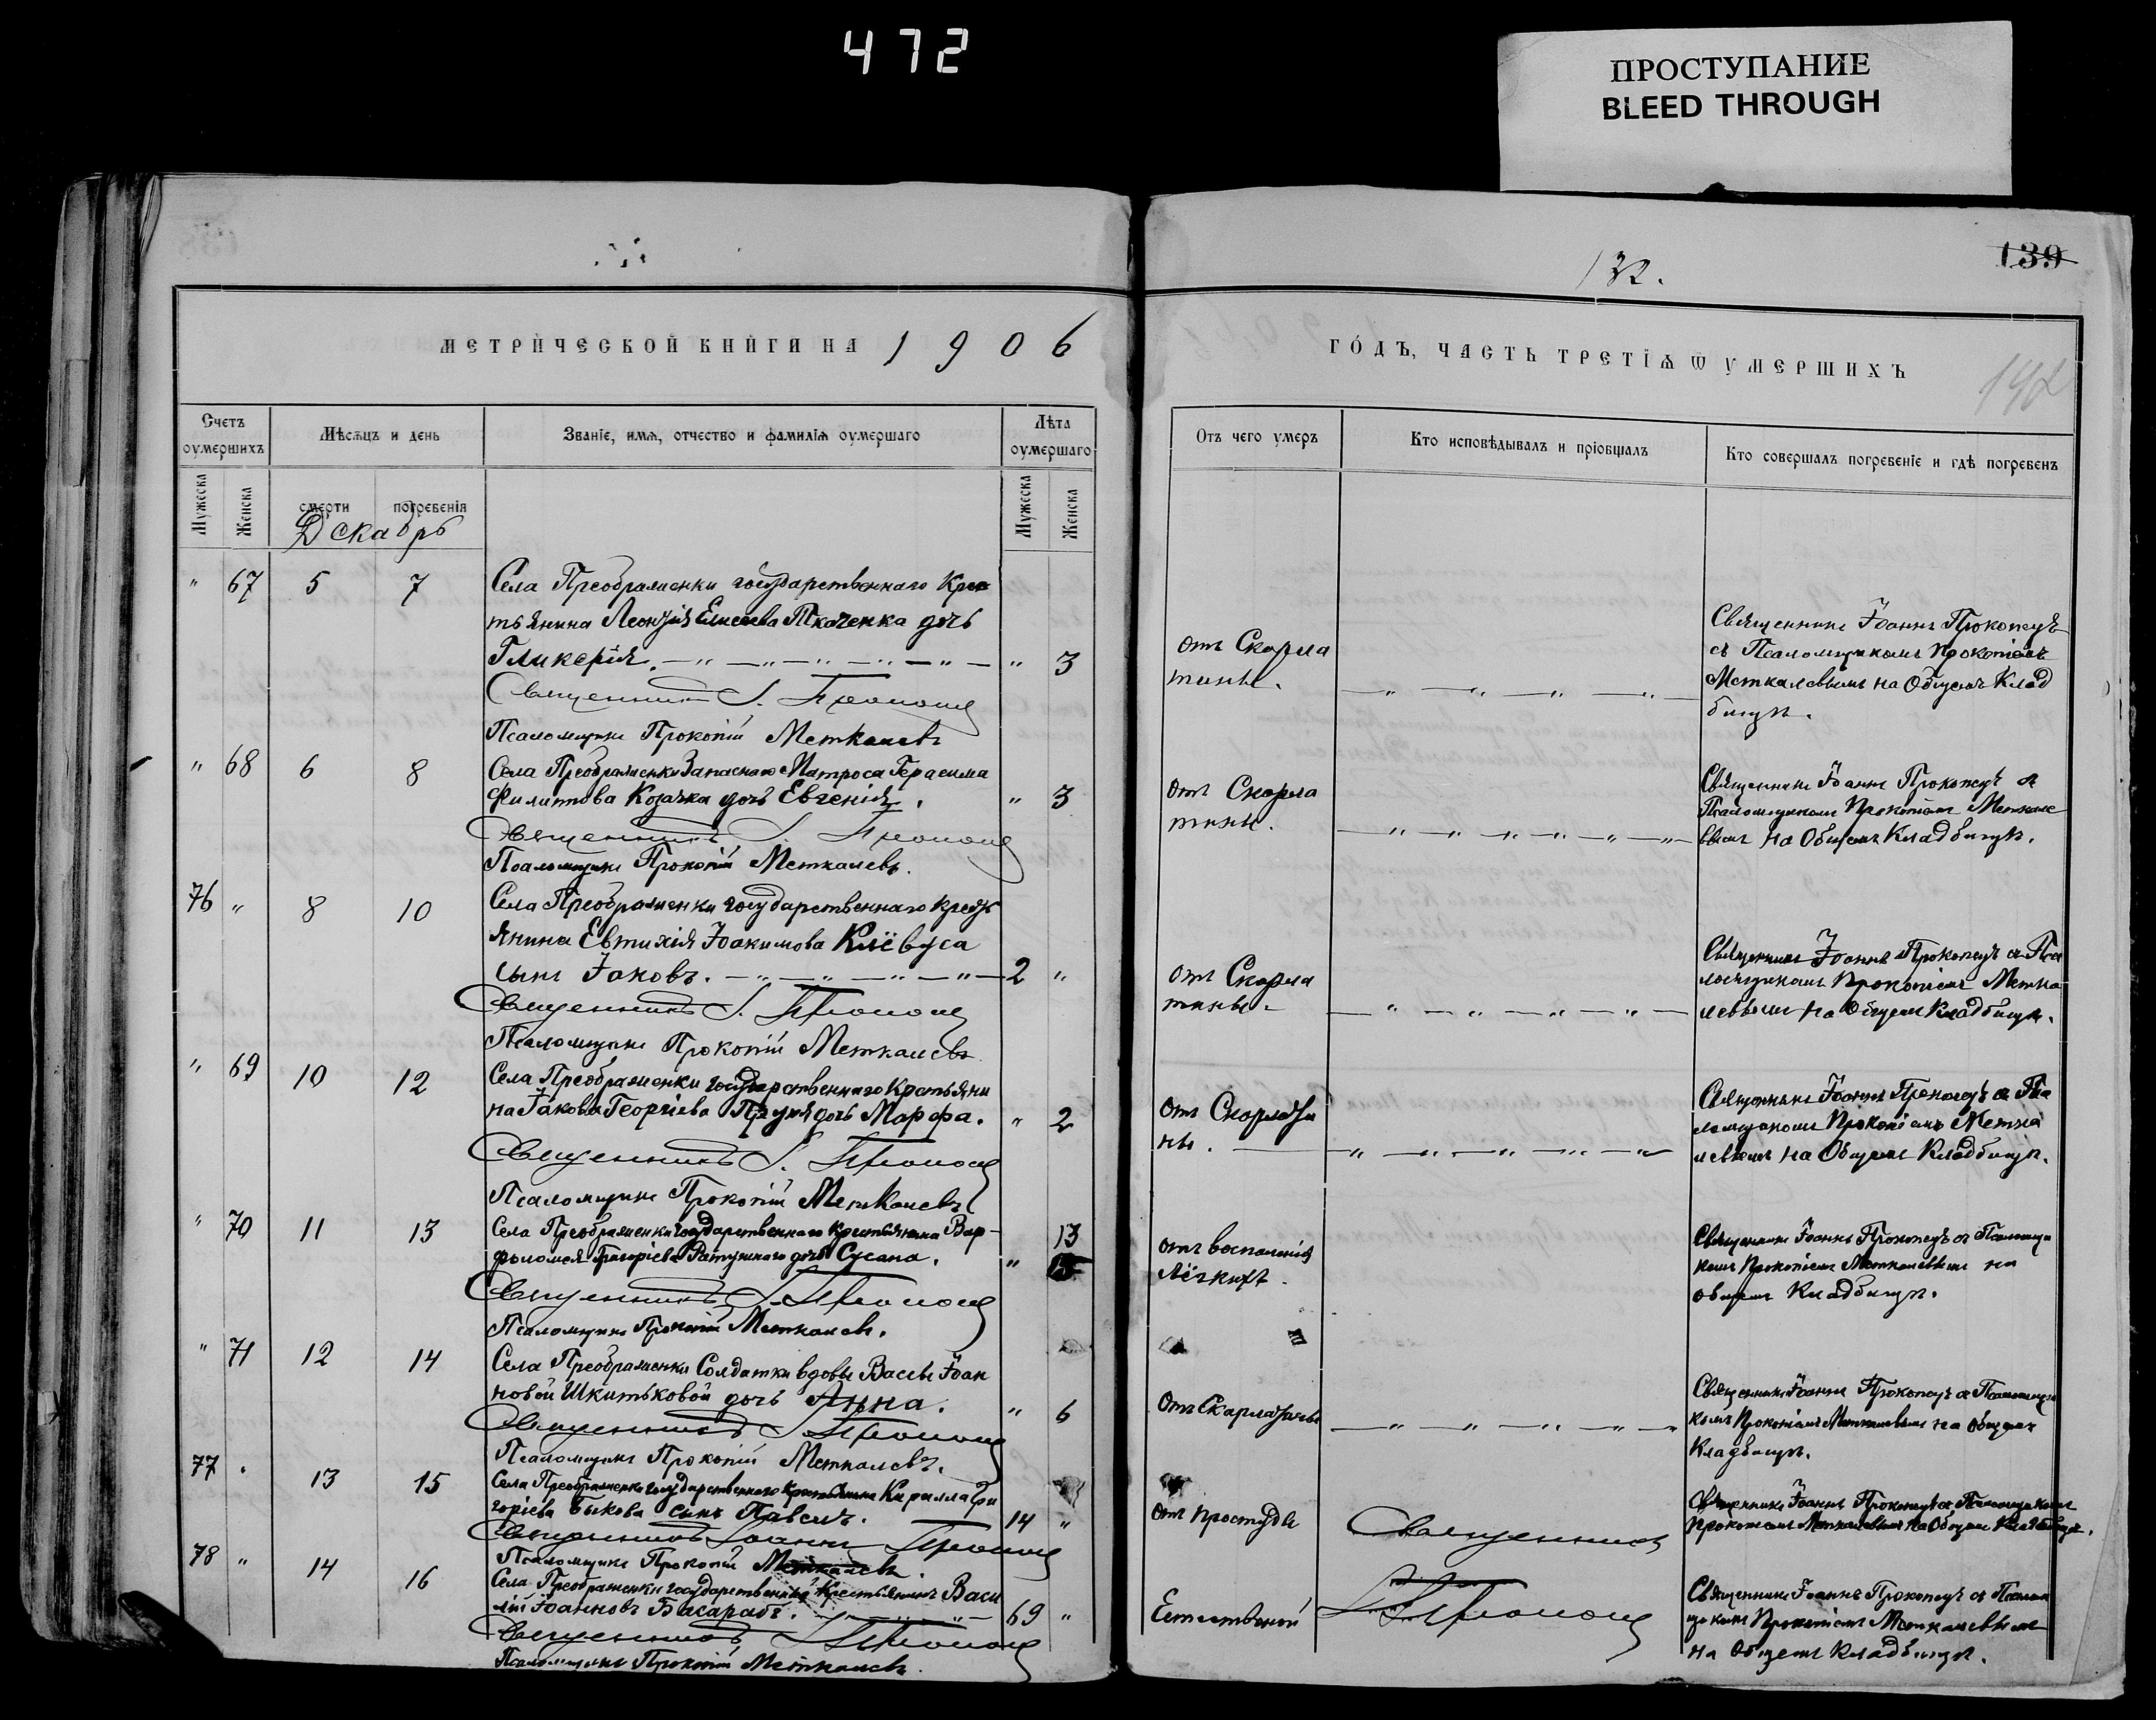 472
ПРОСТУПАНИЕ
BLEED THROUGH
139
132.
142
МЕТРИЧЕСКОЙ КНИГИ НА 1906
ГОДЪ, ЧАСТЬ ТРЕТІЯ Ѿ УМЕРШИХЪ
Счетъ оумершихъ
Мѣсяцъ и день
Званіе, имя, отчество и фамилія оумершаго
Лѣта оумершаго
Отъ чего умеръ
Кто исповѣдывалъ и пріобщалъ
Кто совершалъ погребеніе и гдѣ погребенъ
Мужеска
Женска
смерти
погребенія
Мужеска
Женска
Декабрь
" 67 5 7 Села Преображенки государственнаго Крес
тьянина Леонтія Елисеева Ткаченка дочь
Гликерія. " 3
Священникъ І. Прокопец
Псаломщикъ Прокопій Меткалевъ
отъ Скарла
тины.
Священникъ Іоаннъ Прокопецъ
съ Псаломщикомъ Прокопіемъ
Меткалевымъ на Общемъ Клад
бищѣ.
" 68 6 8 Села Преображенки Запаснаго Матроса Герасима
Филиппова Козачка дочь Евгенія. " 3
Священникъ І. Прокопец
Псаломщикъ Прокопій Меткалевъ.
отъ Скарла
тины.
Священникъ Іоаннъ Прокопецъ съ
Псаломщикомъ Прокопіемъ Меткале
вымъ на Общемъ Кладбищѣ.
76 " 8 10 Села Преображенки государственнаго крест
янина Евтихія Іоакимова Клёвуса
сынъ Іаковъ. 2 "
Священникъ І. Прокопец
Псаломщикъ Прокопій Меткалевъ
отъ Скарла
тины.
Священникъ Іоаннъ Прокопецъ съ Пса
ломщикомъ Прокопіемъ Метка
левымъ на Общемъ Кладбищѣ.
" 69 10 12 Села Преображенки государственнаго Крестьяни
на Іакова Георгіева дочь Марфа. " 2
Священникъ І. Прокопец
Псаломщикъ Прокопій Меткалевъ
отъ Скарлати
ны.
Священникъ Іоаннъ Прокопецъ съ Пса
ломщикомъ Прокопіемъ Метка
левымъ на Общемъ Кладбищѣ.
" 70 11 13 Села Преображенки государственнаго Крестьянина Вар-
фоломея Григоріева дочь Сусана. " 13
Священникъ І. Прокопец
Псаломщикъ Прокопій Меткалевъ.
отъ воспаленія
лёгкихъ.
Священникъ Іоаннъ Прокопецъ съ Псаломщи
комъ Прокопіемъ Меткалевымъ на
общемъ Кладбищѣ.
" 71 12 14 Села Преображенки Солдатки вдовы Вассы Іоан
новой Шкитьковой дочь Анна. " 6
Священникъ І. Прокопец
Псаломщикъ Прокопій Меткалевъ.
отъ Скарлатины
Священникъ Іоаннъ Прокопецъ съ Псаломщи
комъ Прокопіемъ Меткалевымъ на общемъ
Кладбищѣ.
77 " 13 15 Села Преображенки государственнаго Крестьянина Кирилла Гри
горіева Быкова сынъ Павелъ. 14 "
Священникъ Іоаннъ Прокопец
Псаломщикъ Прокопій Меткалевъ
отъ простуды
Священникъ
Священникъ Іоаннъ Прокопецъ съ Псаломщикомъ
Прокопіемъ Меткалевымъ на Общемъ Кладбищѣ.
78 " 14 16 Села Преображенки государственный Крестьянинъ Васи
лій Іоанновъ Басарабъ. 69 "
Священникъ І. Прокопец
Псаломщикъ Прокопій Меткалевъ.
Естественой
І. Прокопец
Священникъ Іоаннъ Прокопецъ съ Псалом
щикомъ Прокопіемъ Меткалевымъ
на Общемъ Кладбищѣ.